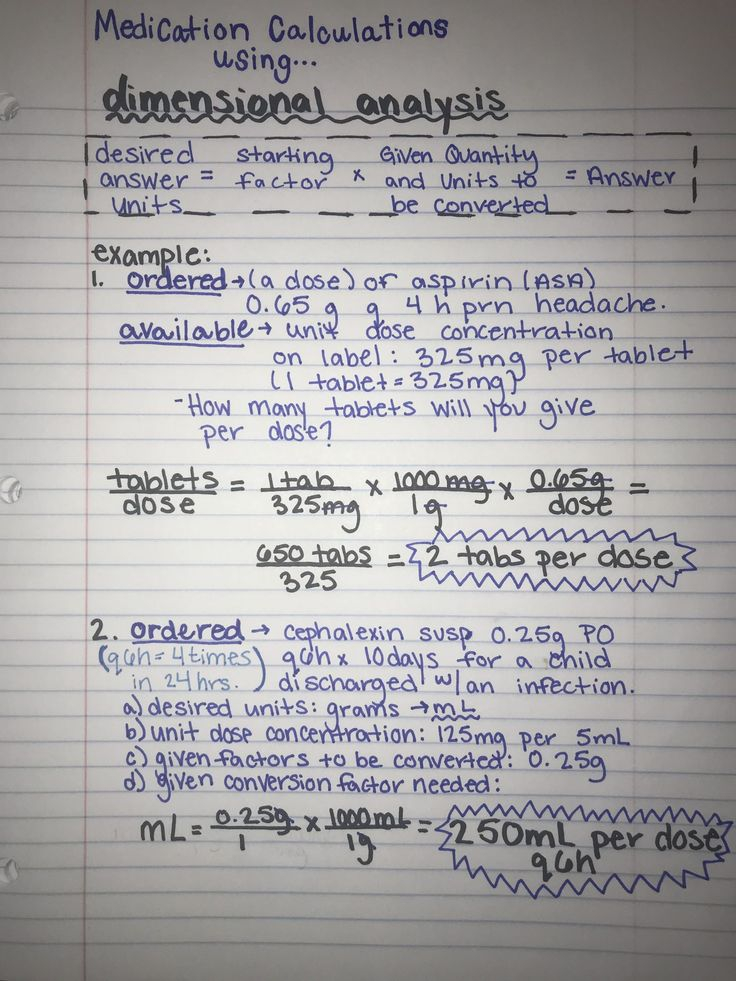 Medication Calculations
using...
dimensional analysis
desired starting Given Quantity
answer = factor x and units to = Answer
units be converted
example:
1. ordered → (a dose) of aspirin (ASA)
0.65 g q 4 h prn headache.
available → unit dose concentration
on label: 325mg per tablet
(1 tablet = 325mg)
- How many tablets will you give
per dose?
tablets/dose = 1 tab/325mg x 1000 mg/1g x 0.65g/dose =
650 tabs/325 = 2 tabs per dose
2. ordered → cephalexin susp 0.25g PO
(q6h = 4 times) q6h x 10 days for a child
in 24 hrs. discharged w/ an infection.
a) desired units: grams → mL
b) unit dose concentration: 125mg per 5mL
c) given factors to be converted: 0.25g
d) given conversion factor needed:
mL = 0.25g/1 x 1000mL/1g = 250mL per dose
q6h